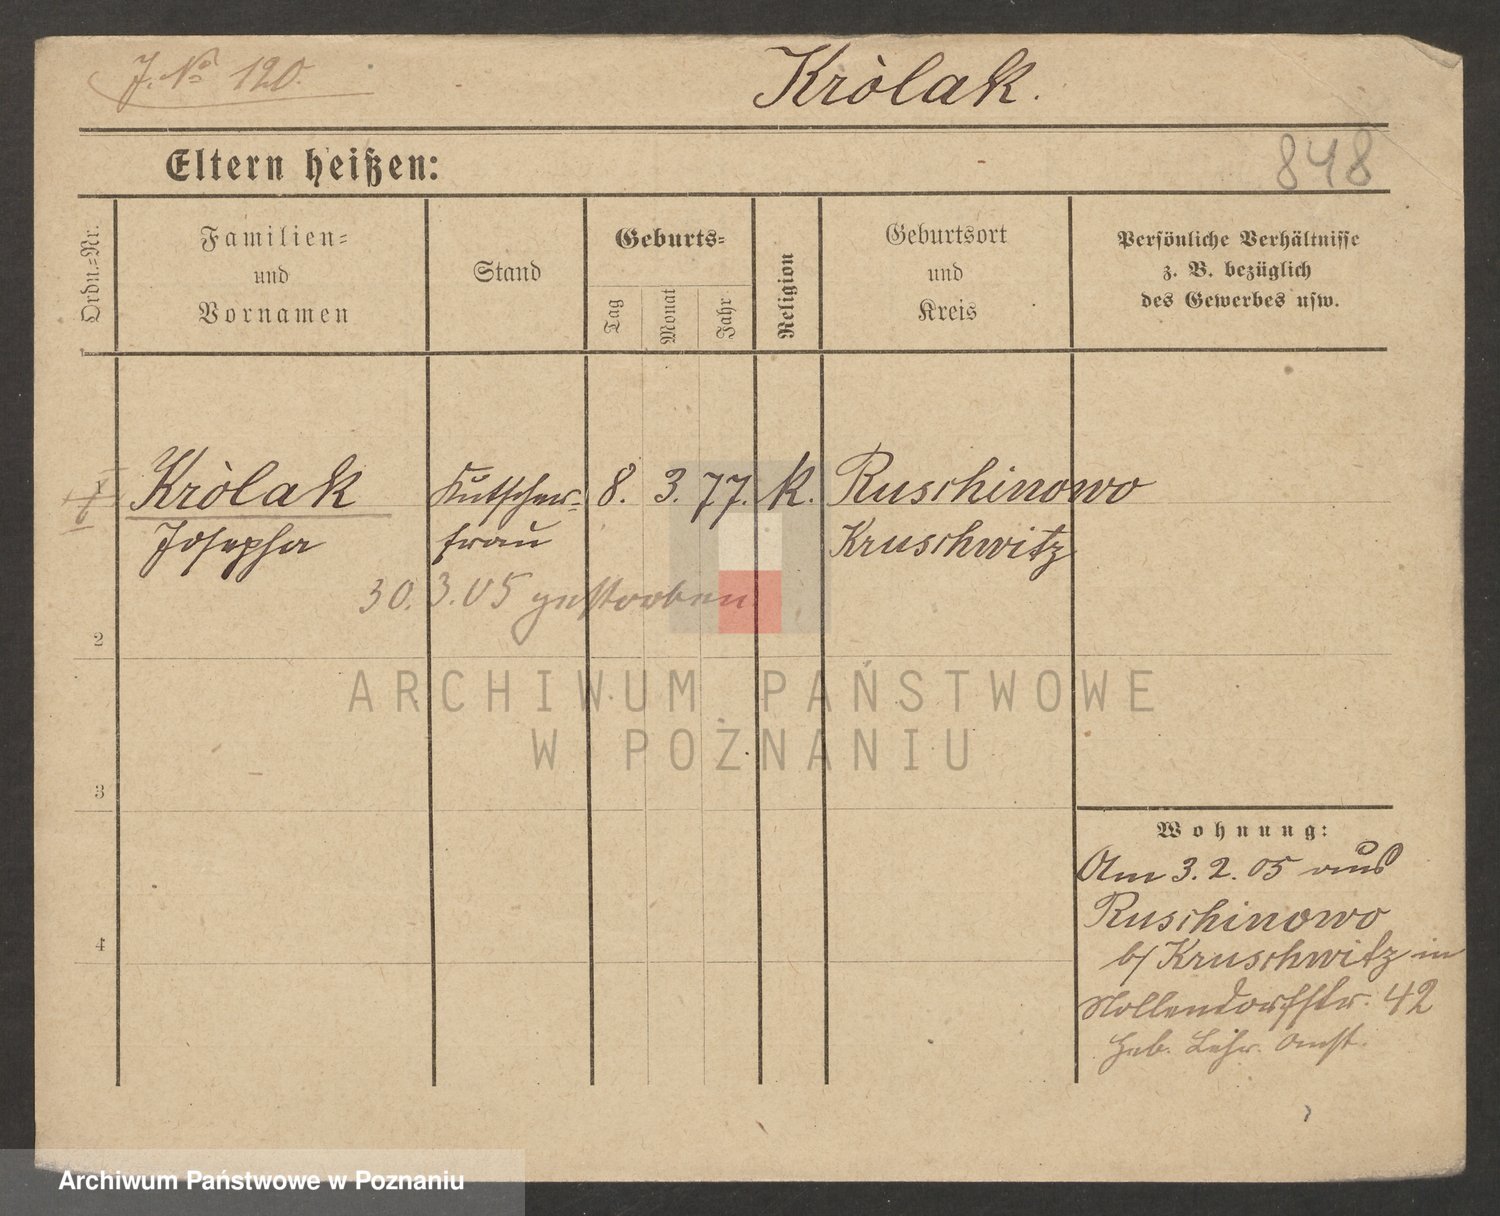 J. No 120.
Kròlak.
Eltern heißen:
848
Ordn.-Nr.
Familien-
und
Vornamen
Stand
Geburts-
Tag
Monat
Jahr
Religion
Geburtsort
und
Kreis
Persönliche Verhältnisse
z. B. bezüglich
des Gewerbes usw.
Kròlak Kutscher- 8. 3. 77. k. Ruschinowo
Josepha frau Kruschwitz
30. 3. 05 gestorben
2
ARCHIWUM PAŃSTWOWE
W POZNANIU
3
Wohnung:
Am 3. 2. 05 aus
Ruschinowo
4
b/ Kruschwitz in
Nollendorfstr. 42
Heb. Lehr. Anst.
Archiwum Państwowe w Poznaniu